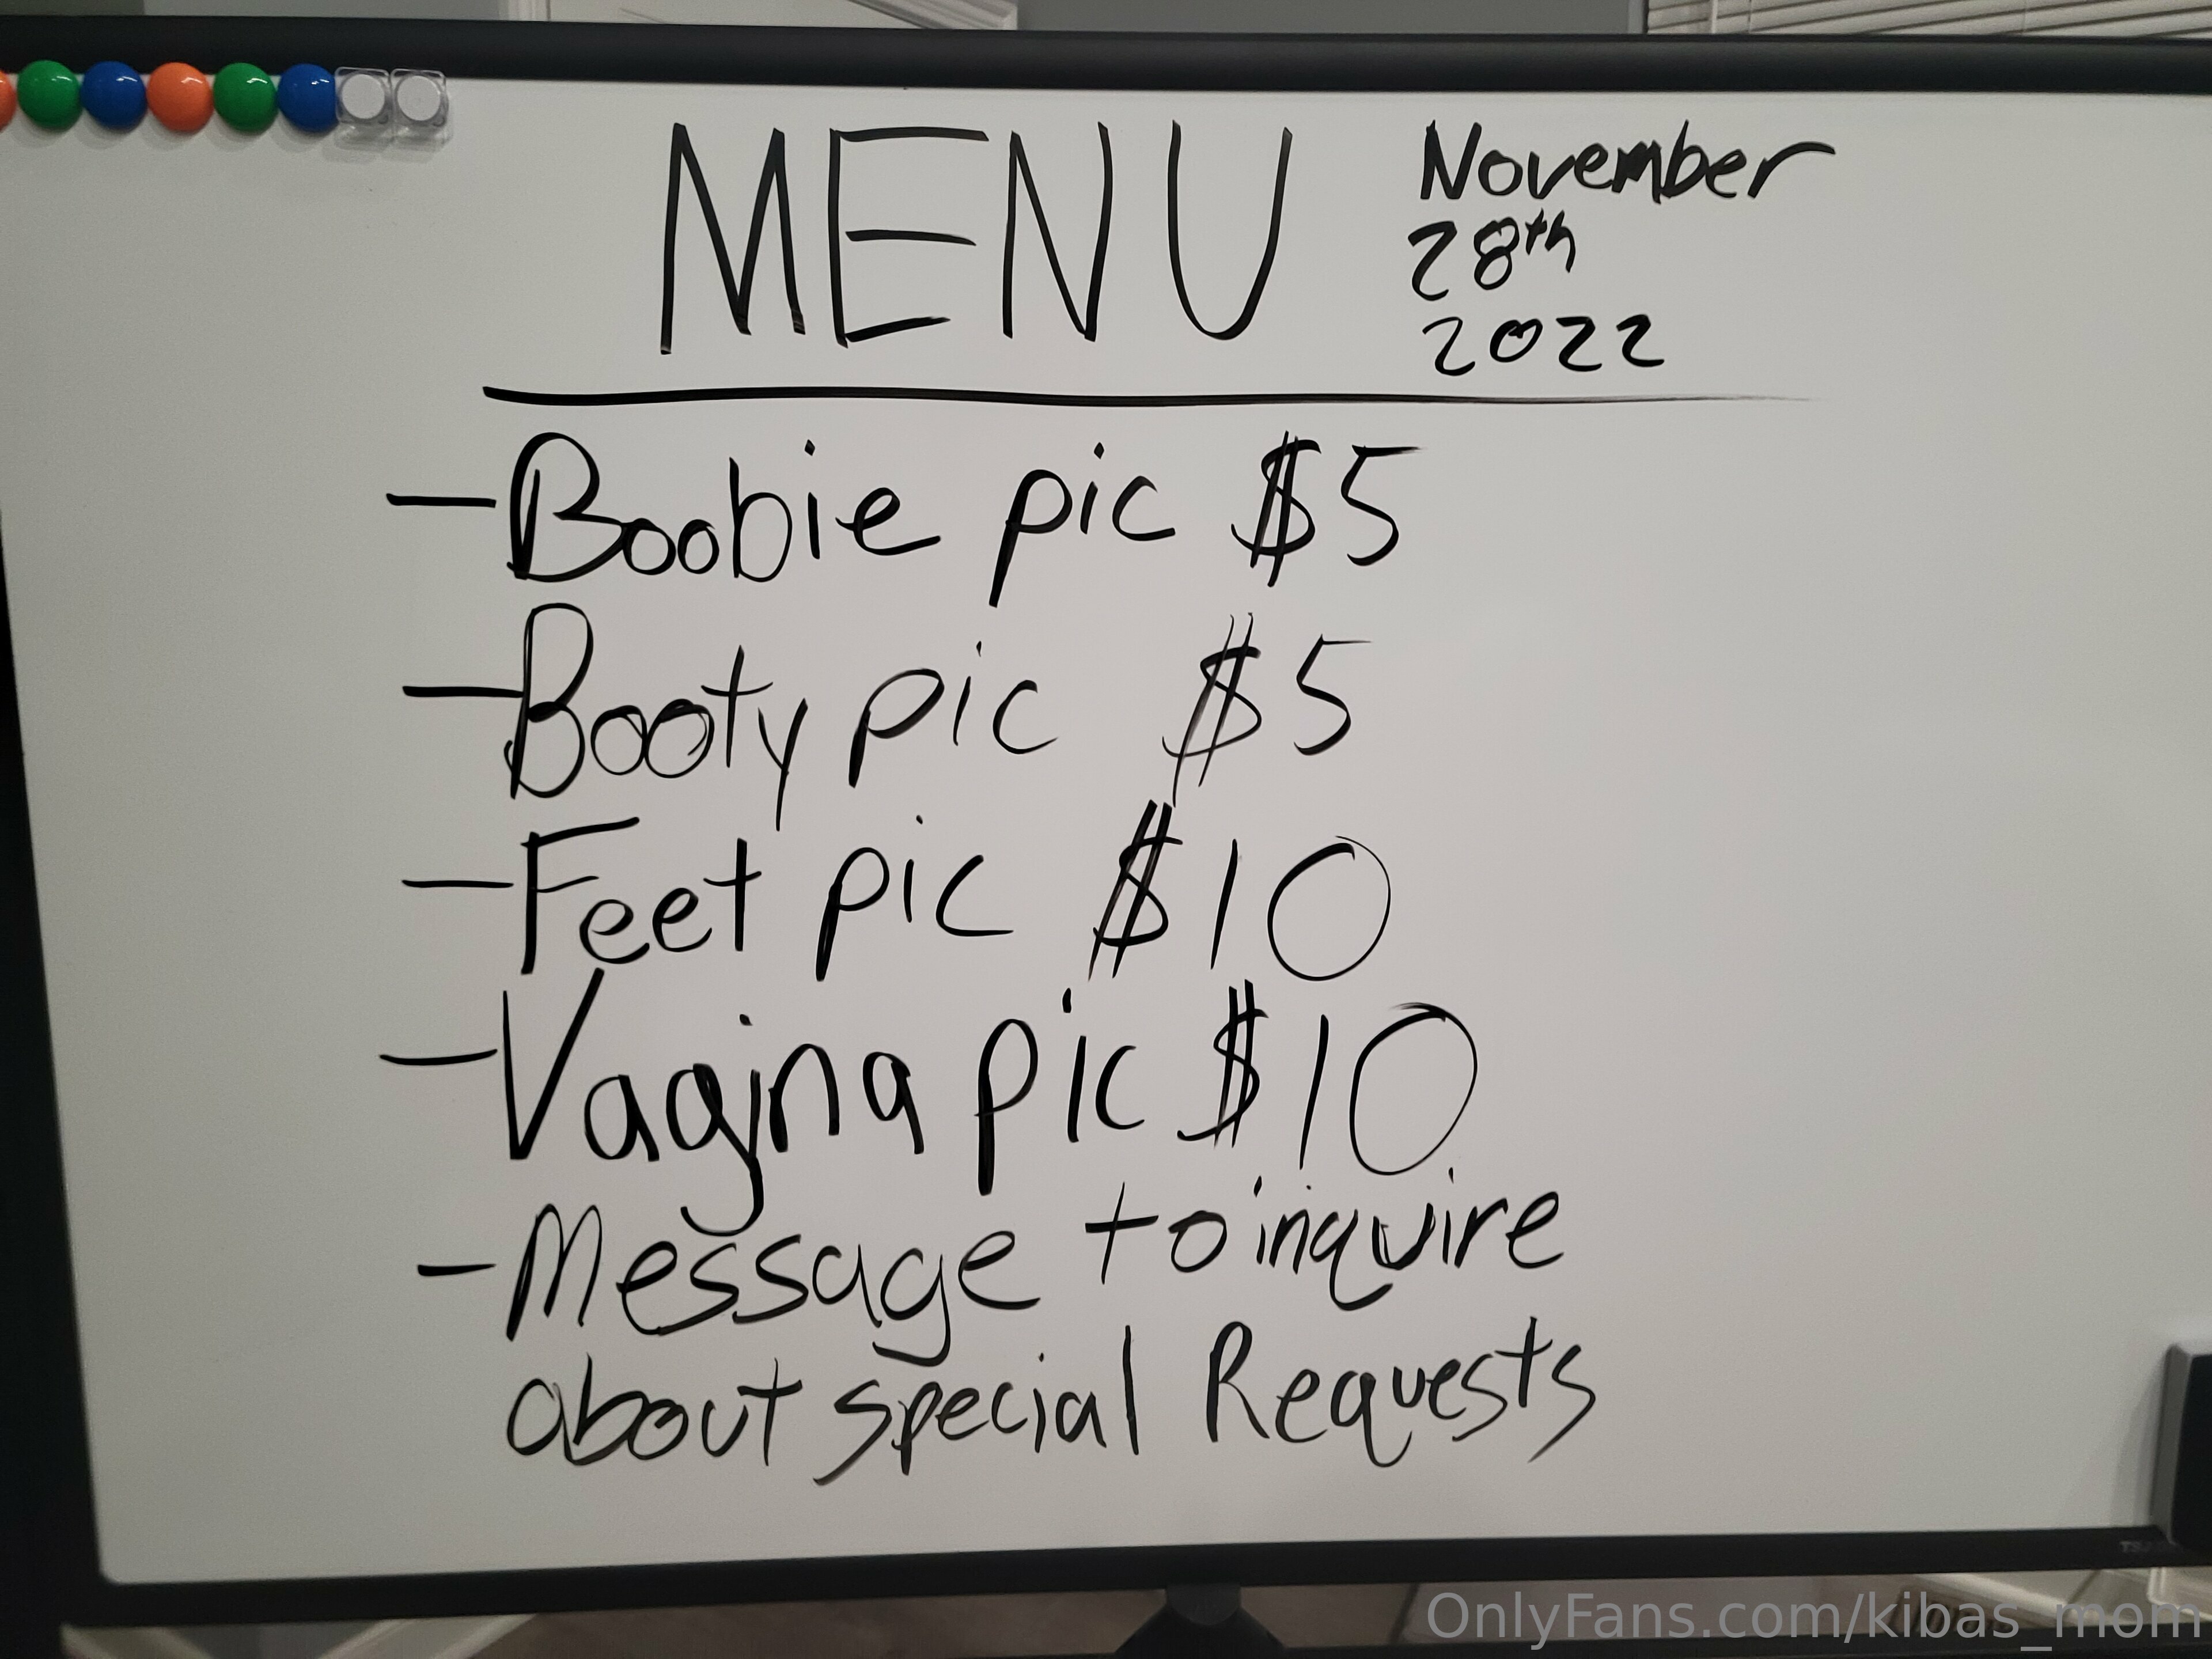 MENU
November
28th
2022
- Boobie pic $5
- Booty pic $5
- Feet pic $10
- Vagina pic $10
- Message to inquire
about special Requests
OnlyFans.com/kibas_mom